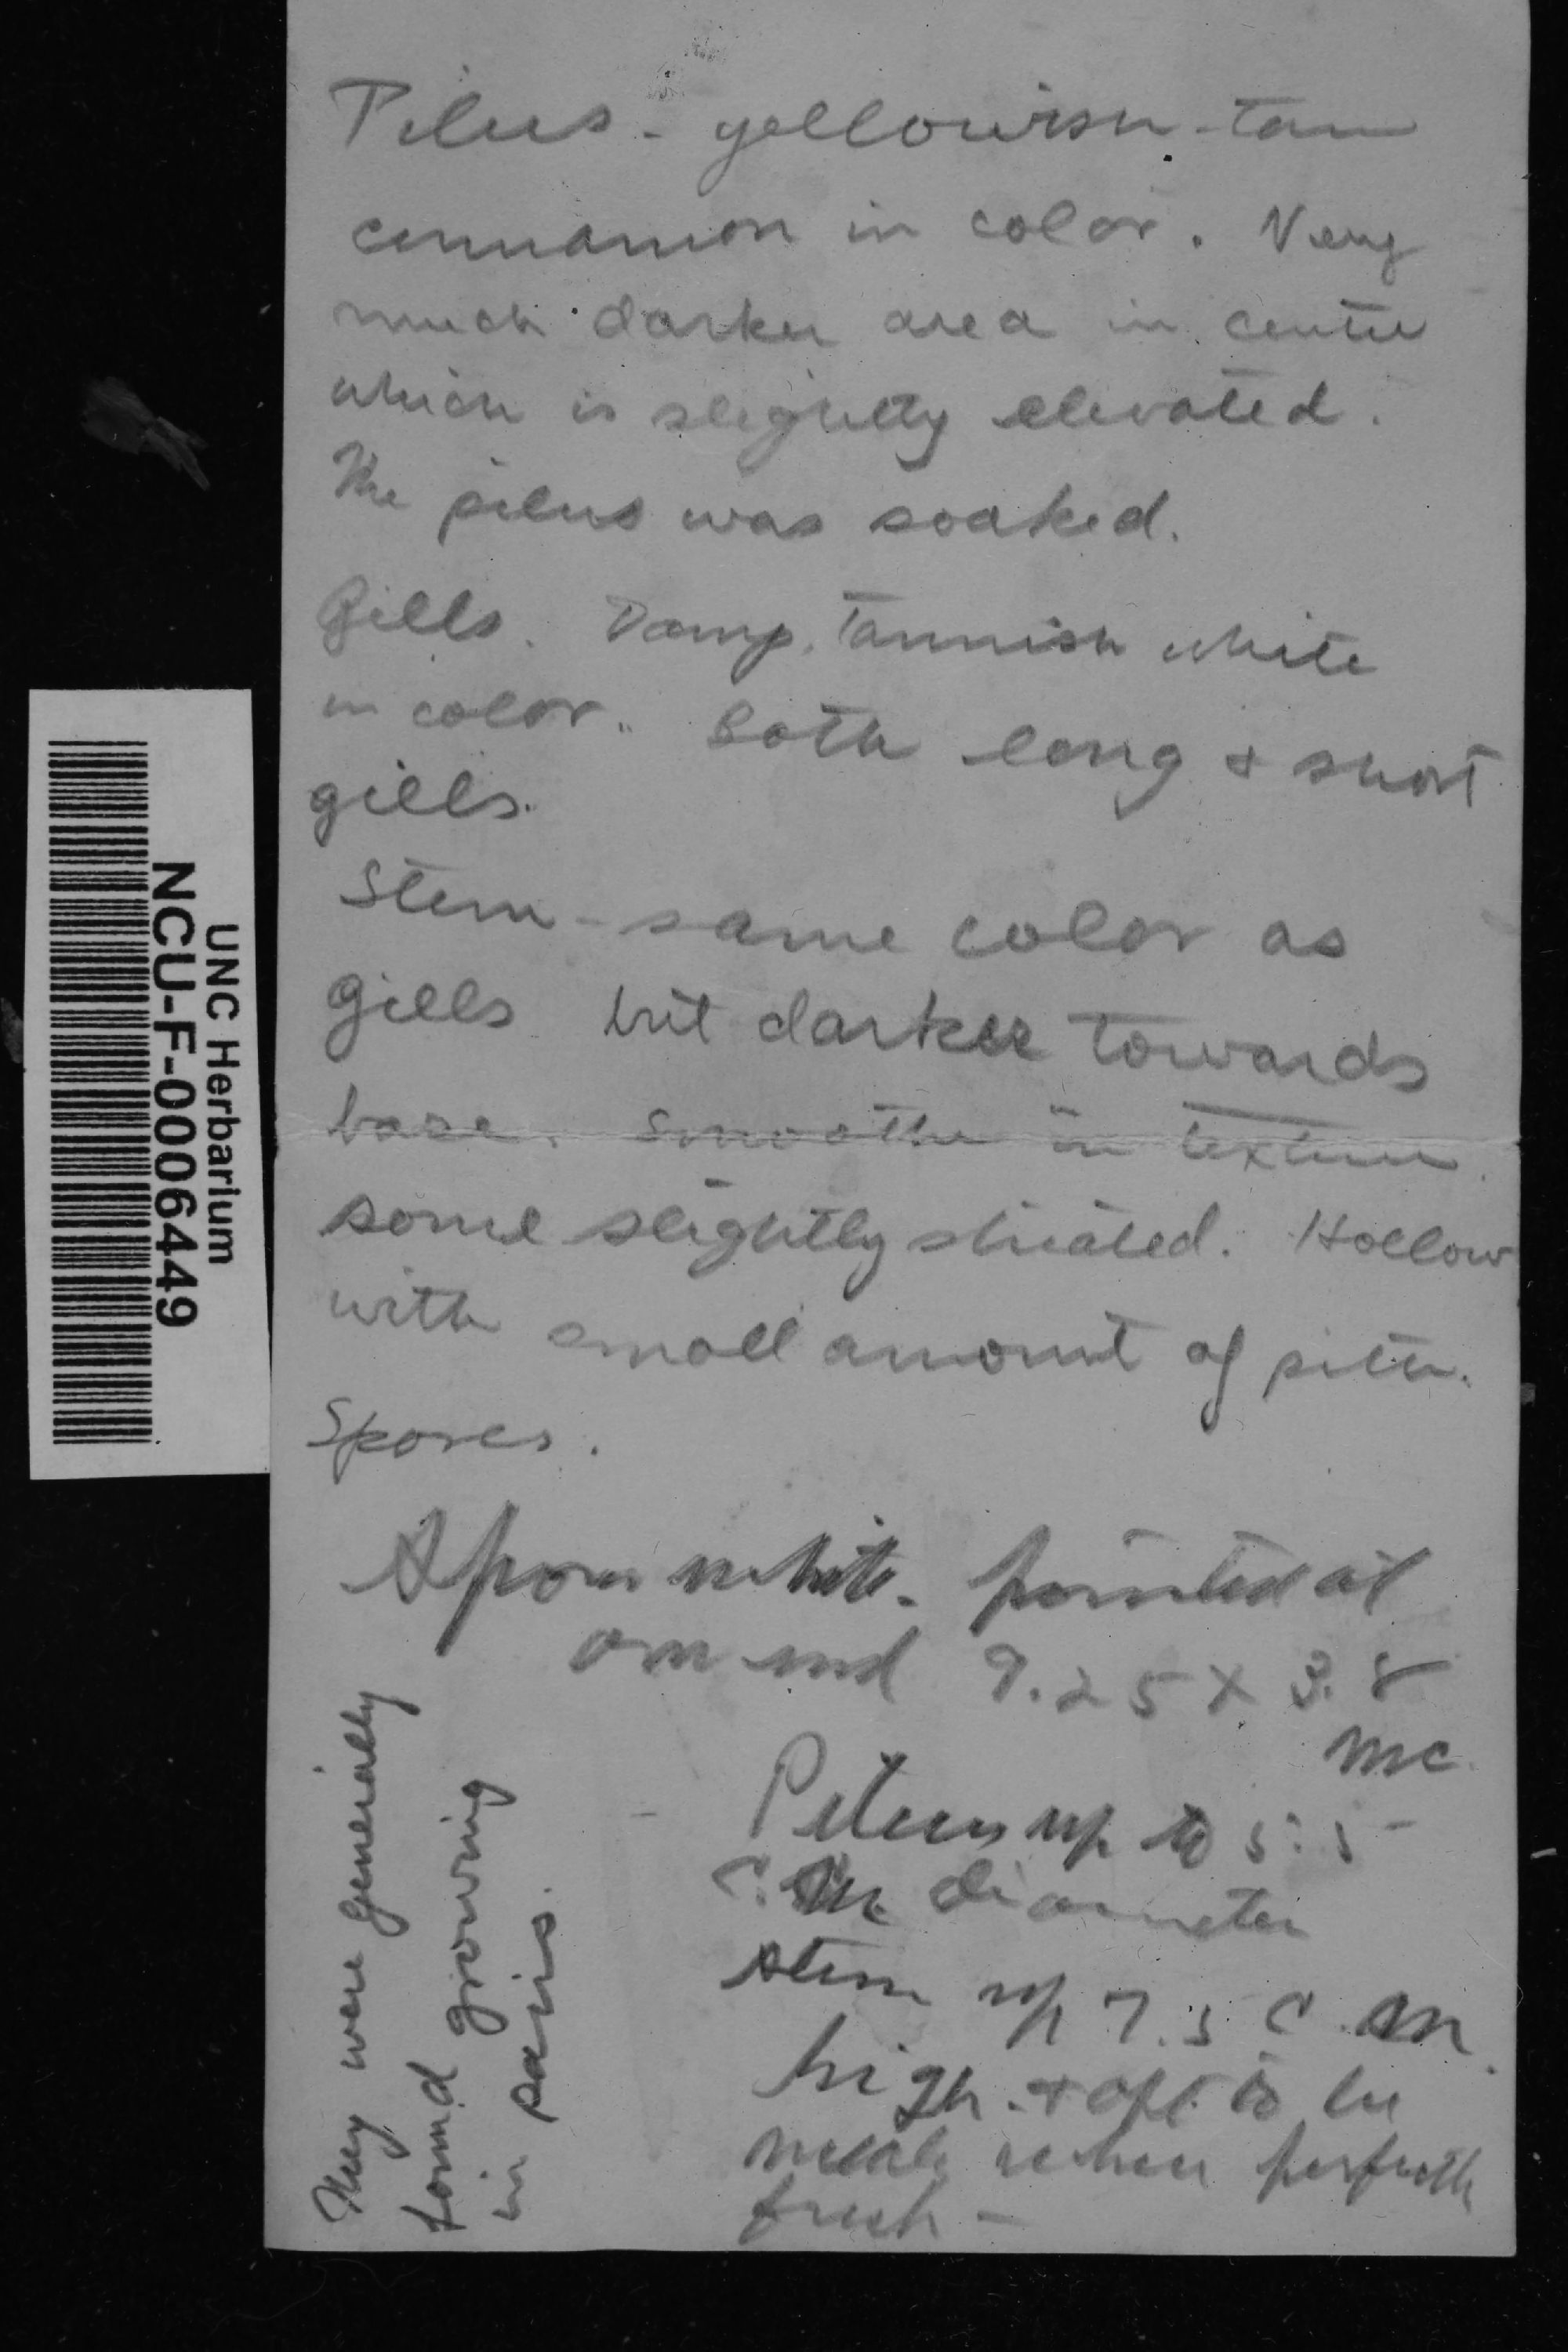 Pileus - yellowish-tan
cinnamon in color. Very
much darker area in center
which is slightly elevated.
The pileus was soaked.
Gills. Damp, tannish white
in color. Both long & short
gills.
Stem - same color as
gills but darker towards
base. Smooth in texture
some slightly striated. Hollow
with small amount of pith.
Spores.
Spores white. pointed at
one end 9.25 x 3.8
mc.
Pileus up to 5.5
c.m. diameter
stem up 7.5 c.m.
high. & apt to be
mealy when perfectly
fresh -
They were generally
found growing
in pairs.
UNC Herbarium
NCU-F-0006449